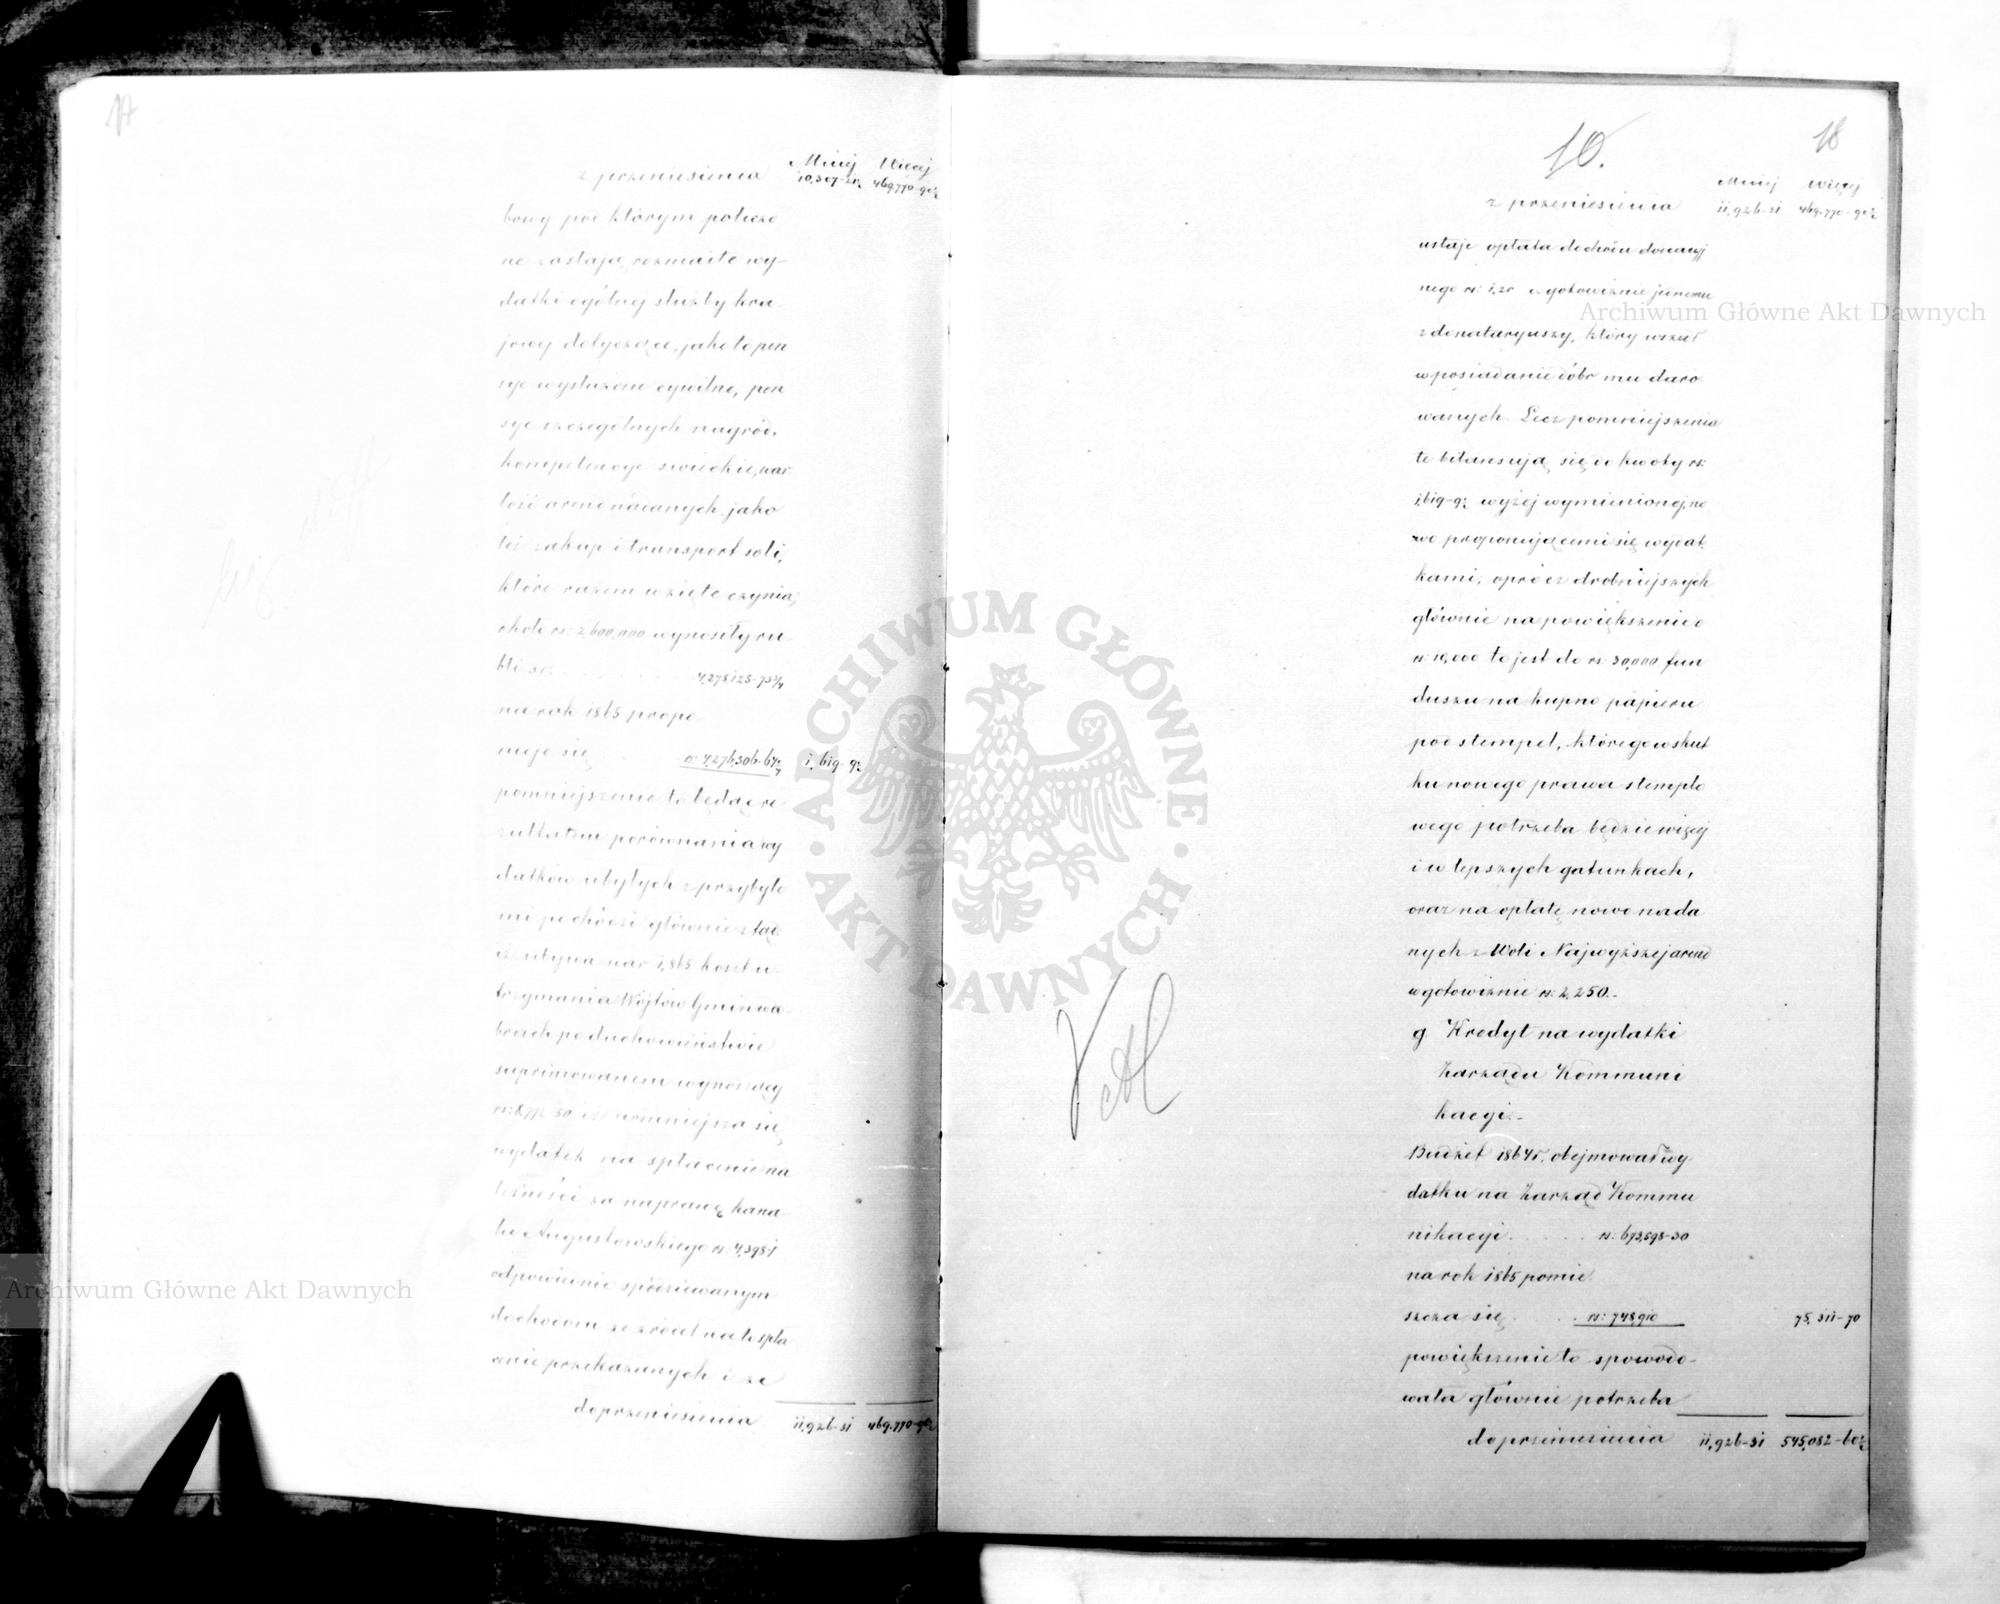 17
Mniéj Więcéj
z przeniesienia 10,307-21½ 469,770-90½
bowy pod którym policzo
ne zostają rozmaite wy-
datki ogólnéj służby kra-
jowéj dotyczące, jako to pen
sye wysłużone cywilne, pen
sye szczególnych nagród,
kompetencye świeckie, war-
tość arend nadanych, jako
też zakup i transport soli,
które razem wzięte czynią
około rs: 2,600,000 wynosiły w
na rok 1865 propo
nuje się rs: 4,276,506-64¾ 1,619-9½
pomniejszenie to będąc re
zultatem porównania wy
datków ubyłych z przybyłe
mi pochodzi głównie ztąd
iż ubywa na r. 1,865 koszt u-
trzymania Wójtów Gmin w do
brach po duchowieństwie
suprimowanem wynoszący
rs: 8,772-30 i że pomniejsza się
wydatek na spłacenie na
leżności za naprawę kana-
łu Augustowskiego rs: 4,398-1
odpowiednio spodziewanym
dochodom ze źródeł na te spła
cenie przekazanych i że
do przeniesienia 11,926-31 469,770-90½
10.
18
Mniéj Więcéj
z przeniesienia 11,926-31 469,770-90½
ustaje opłata dochodu donacyj
nego rs: w gotowiźnie jednemu
z donataryuszy, który wszedł
w posiadanie dóbr mu daro
wanych. Lecz pomniejszenia
te bilansują się do kwoty rs:
1,619-9½ wyżéj wymienionéj, no
wo proponującemi się wydat
kami, oprócz drobniejszych
głównie na powiększenie o
rs: 10,000 to jest do rs: 30,000 fun
duszu na kupno papieru
pod stempel, którego wskut
ku nowego prawa stemplo
wego potrzeba będzie więcéj
i w lepszych gatunkach,
oraz na opłatę nowo nada
nych z Woli Najwyższéj arend
w gotowiźnie rs: 2,250.-
g Kredyt na wydatki
Zarządu Kommuni
kacyi.-
Budżet 1864 r. obejmował wy
datku na Zarząd Kommu
nikacyi rs: 673,598-30
na rok 1865 pomie
szcza się rs: 748,910 75,311-70
powiększenie to spowodo-
wała głównie potrzeba
do przeniesienia 11,926-31 545,082-60½
Archiwum Główne Akt Dawnych
Archiwum Główne Akt Dawnych
ARCHIWUM GŁÓWNE · AKT DAWNYCH ·